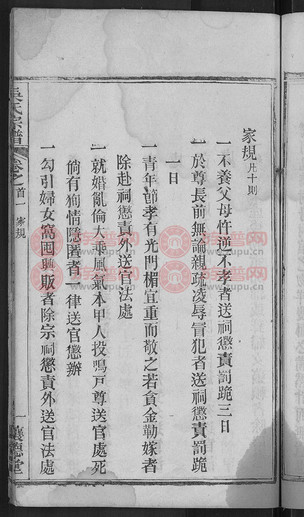 家規 卅十則
一不養父母忤逆不孝者送祠懲責罰跪三日
一於尊長前無論親疏凌辱冒犯者送祠懲責罰跪
一日
一青年節孝有光門楣宜重而敬之若貪金勒嫁者
除赴祠懲責外送官法處
一就婚亂倫大乖風氣本甲人投鳴戶尊送官處死
倘有狥情隱匿者一律送官懲辦
一勾引婦女窩囤興販者除宗祠懲責外送官法處
吳氏宗譜
卷之首
家規
一
讓德堂